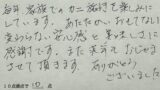 毎年家族でのカニ旅行を楽しみに
しています。あたたかいおもてなし
変わらない安心感と美味しさに
感謝です。また来年もおじゃま
させて頂きます。ありがとう
ございました
10点満点で(10)点